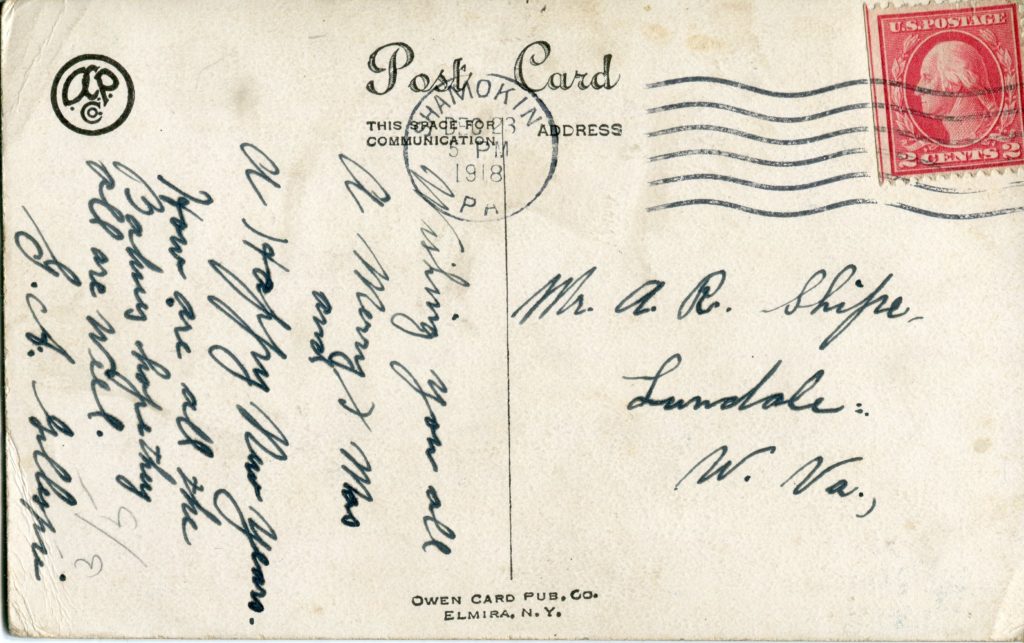 Post Card
THIS SPACE FOR
COMMUNICATION
ADDRESS
SHAMOKIN
DEC 23
5 PM
1918
PA
U.S. POSTAGE
2 CENTS 2
Wishing you all
A Merry X Mas
and
A Happy New Years.
How are all the
hope they
all are well.
Mr. A. R. Shipe,
Lundale
W. Va.,
OWEN CARD PUB. CO.
ELMIRA, N.Y.